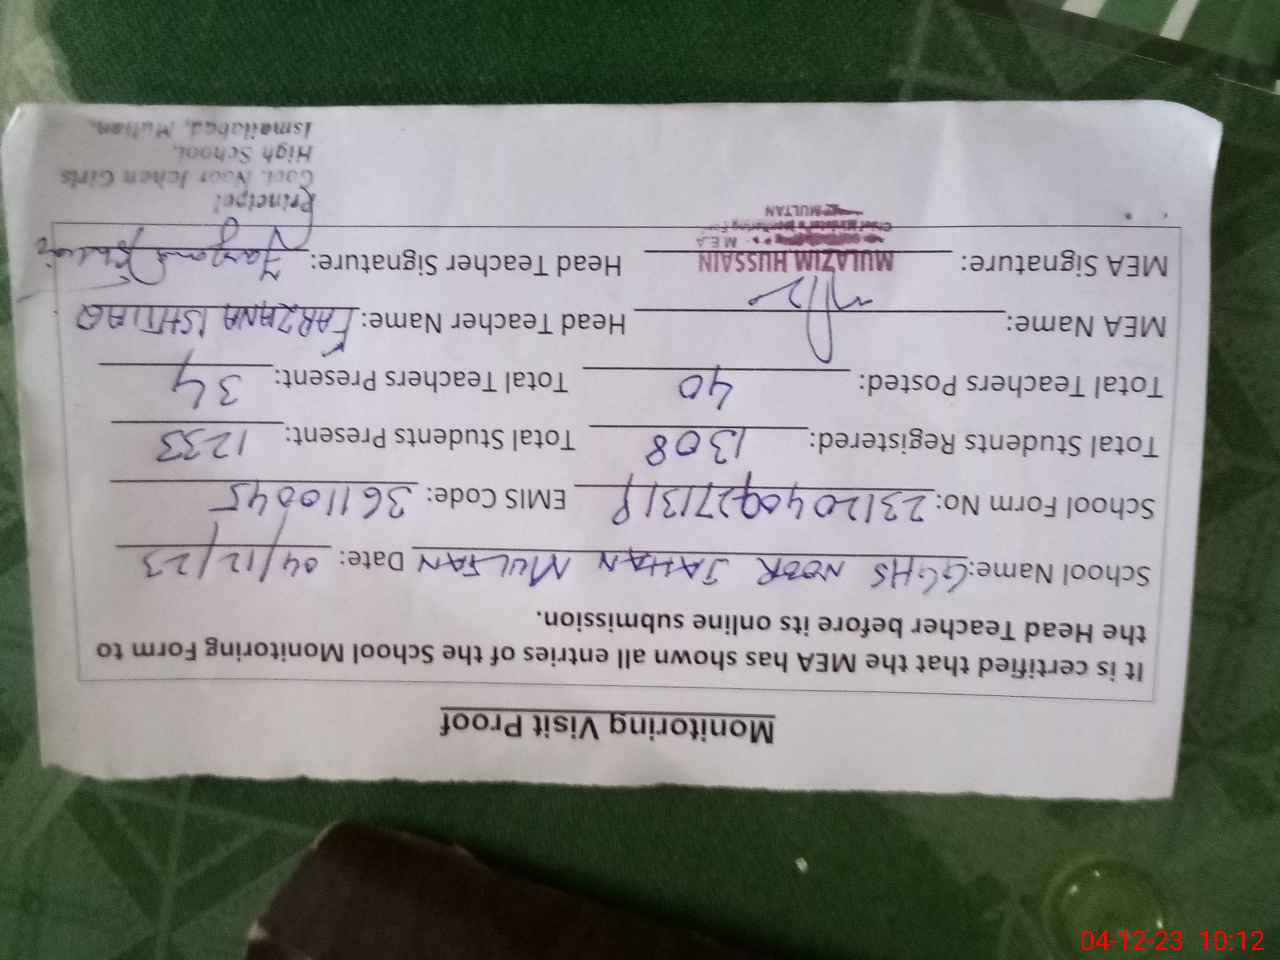 Monitoring Visit Proof
It is certified that the MEA has shown all entries of the School Monitoring Form to
the Head Teacher before its online submission.
School Name: GGHS NOOR JAHAN MULTAN Date: 04/12/23
School Form No: 23120409271319 EMIS Code: 36110045
Total Students Registered: 1308 Total Students Present: 1233
Total Teachers Posted: 40 Total Teachers Present: 34
MEA Name: Head Teacher Name: FARZANA ISHTIAQ
MEA Signature: Head Teacher Signature: Farzana
MULAZIM HUSSAIN
M.E.A
Chief Minister's Monitoring
MULTAN
Principal
Govt. Noor Jehan Girls
High School,
Ismailabad, Multan.
04-12-23 10:12